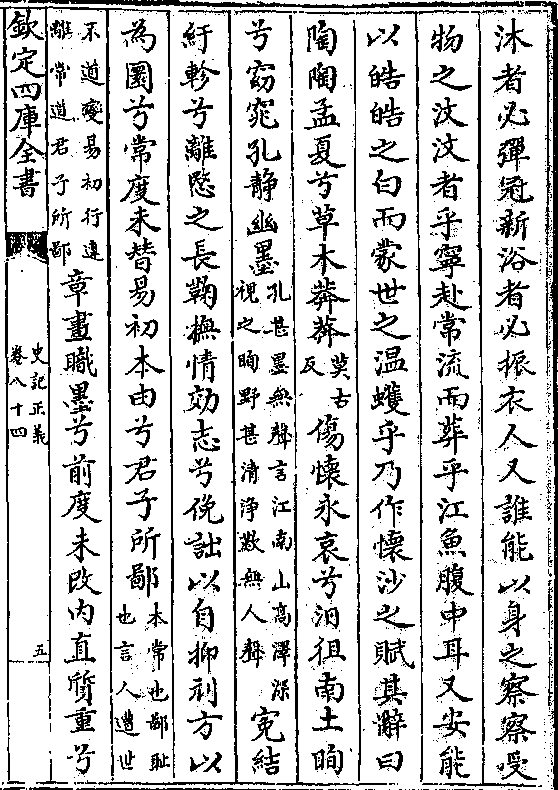 沐者必彈冠新浴者必振衣人又誰能以身之察察受
物之汶汶者乎寧赴常流而葬乎江魚腹中耳又安能
以皓皓之白而蒙世之温蠖乎乃作懷沙之賦其辭曰
陶陶孟夏兮草木莽莽莫古反傷懷永哀兮汨徂南土眴
兮窈窕孔静幽墨孔甚墨無聲言江南山高澤深視之眴野甚清浄歎無人聲寃結
紆軫兮離愍之長鞠撫情効志兮俛詘以自抑刓方以
為圜兮常度未替易初本由兮君子所鄙本常也鄙耻也言人遭世
不道變易初行違離常道君子所鄙章畫職墨兮前度未改内直質重兮
欽定四庫全書
史記正義
卷八十四
五